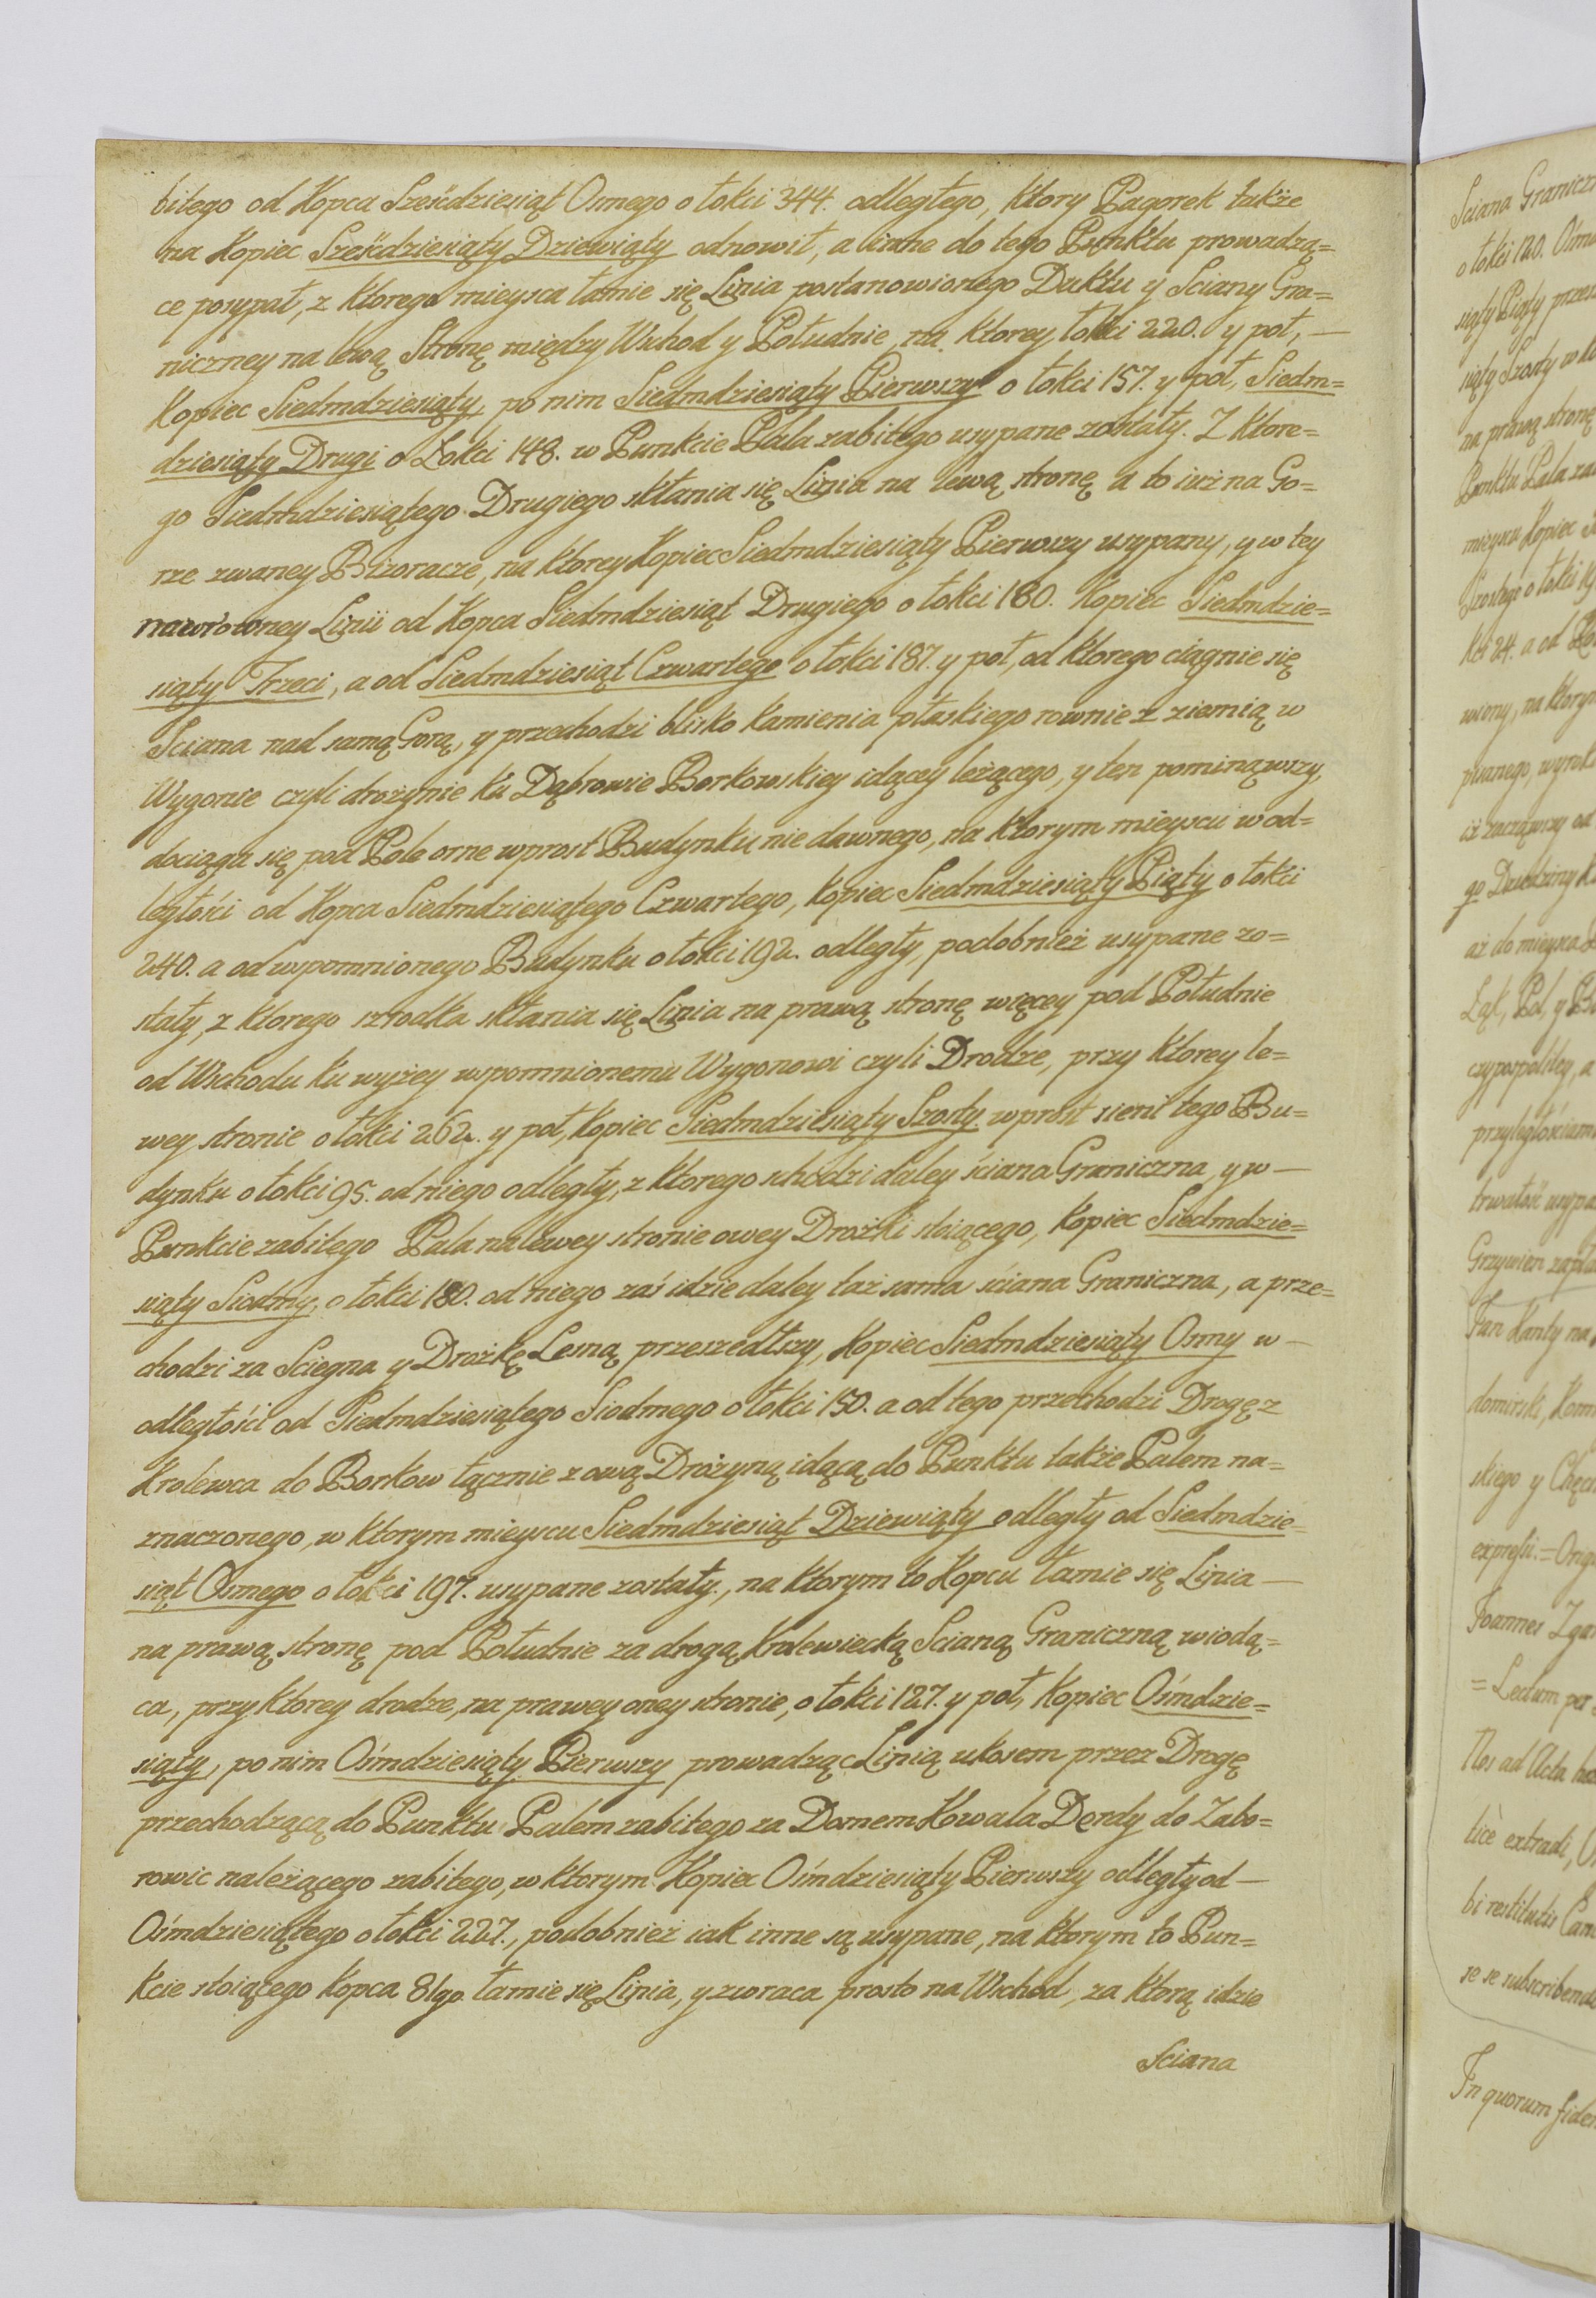 bitego od Kopca Sześćdziesiąt Osmego o łokci 344. odległego, ktory Pagorek także
na Kopiec Sześćdziesiąty Dziewiąty odnowił, a linne do tego Punktu prowadzą=
ce posypał, z ktorego mieysca łamie się Linia postanowionego Duktu y Sciany Gra=
niczney na lewą Stronę między Wschod y Południe, na ktorey łokci 220. y poł, —
Kopiec Siedmdziesiąty, po nim Siedmdziesiąty Pierwszy o łokci 157. y poł, Siedm=
dziesiąty Drugi o Łokci 148. w Punkcie Pala zabitego usypane zostały. Z ktore=
go Siedmdziesiątego Drugiego skłania się Linia na lewą stronę a to iuż na Go=
rze zwaney Brzoracze, na ktorey Kopiec Siedmdziesiąty Pierwszy usypany, y w tey
nawroconey Linii od Kopca Siedmdziesiąt Drugiego o łokci 180. Kopiec Siedmdzie=
siąty Trzeci, a od Siedmdziesiąt Czwartego o łokci 187. y poł, od ktorego ciągnie się
Sciana nad samą Gorą, y przechodzi blisko kamienia płaskiego rownie z ziemią w
Wygonie czyli drożynie ku Dąbrowie Borkowskiey idącey leżącego, y ten pominąwszy,
dociąga się pod Pole orne wprost Budynku nie dawnego, na ktorym mieyscu w od=
ległości od Kopca Siedmdziesiątego Czwartego, Kopiec Siedmdziesiąty Piąty o łokci
240. a od wspomnionego Budynku o łokci 192. odległy, podobnież usypane zo=
stały, z ktorego szrodka skłania się Linia na prawą stronę więcey pod Południe
od Wschodu ku wyżey wspomnionemu Wygonowi czyli Drodze, przy ktorey le=
wey stronie o łokci 262. y poł, Kopiec Siedmdziesiąty Szosty wprost sieni tego Bu=
dynku o łokci 95. od niego odległy, z ktorego schodzi daley ściana Graniczna, y w —
Punkcie zabitego Pala na lewey stronie owey Drożki stoiącego, Kopiec Siedmdzie=
siąty Siodmy, o łokci 180. od niego zaś idzie daley taż sama ściana Graniczna, a prze=
chodzi za Sciegna y Drożkę Lesną przeszedłszy, Kopiec Siedmdziesiąty Osmy w —
odległości od Siedmdziesiątego Siodmego o łokci 150. a od tego przechodzi Drogę z
Krolewca do Borkow łącznie z ową Drożyną idącą do Punktu także Palem na=
znaczonego, w ktorym mieyscu Siedmdziesiąt Dziewiąty odległy od Siedmdzie=
siąt Osmego o łokci 197. usypane zostały., na ktorym to Kopcu łamie się Linia —
na prawą stronę pod Południe za drogą Krolewiecką Scianą Graniczną wiodą=
ca, przy ktorey drodze, na prawey oney stronie, o łokci 127. y poł, Kopiec Ośmdzie=
siąty, po nim Ośmdziesiąty Pierwszy prowadząc Linią ukosem przez Drogę
przechodzącą do Punktu Palem zabitego za Domem Kowala Derdy do Zabo=
rowic należącego zabitego, w ktorym Kopiec Ośmdziesiąty Pierwszy odległy od —
Ośmdziesiątego o łokci 227., podobnież iak inne są usypane, na ktorym to Pun=
kcie stoiącego Kopca 81go. łamie się Linia, y zwraca prosto na Wschod, za ktorą idzie
Sciana
Sciana Granicz
o łokci 120.
siąty Piąty
siąty Szosty
na prawą stronę
Punktu Pala
mieyscu Kopiec
Szostego o łokci
kci 24. a od
wiony, na ktorym
pisanego,
iż zacząwszy od
go Dziedziny
aż do mieysca
Łąk, Pol, y
czypospolitey, a
przyległościami
trwałość
Grzywien
Jan Kanty na
domirski,
skiego y
=
Joannes
= Lectum per
Nos ad Acta
tice extradi,
bi restitutis
se se subscribendo
In quorum fidem